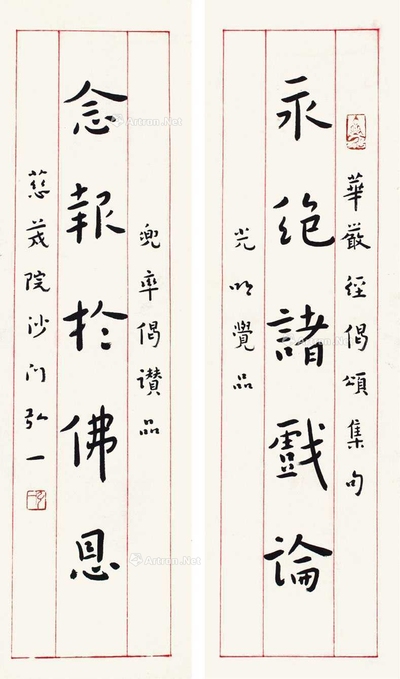 華嚴經偈頌集句
永絕諸戲論
光明覺品
兜率偈讚品
念報於佛恩
慈茂院沙門弘一
Artron.Net
Artron.Net
Artron.Net
Artron.Net